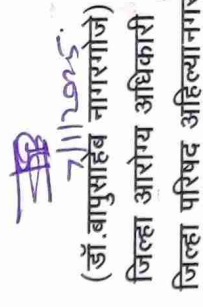 (डॉ.बापुसाहेब नागरगोजे)
जिल्हा आरोग्य अधिकारी
जिल्हा परिषद अहिल्यानगर